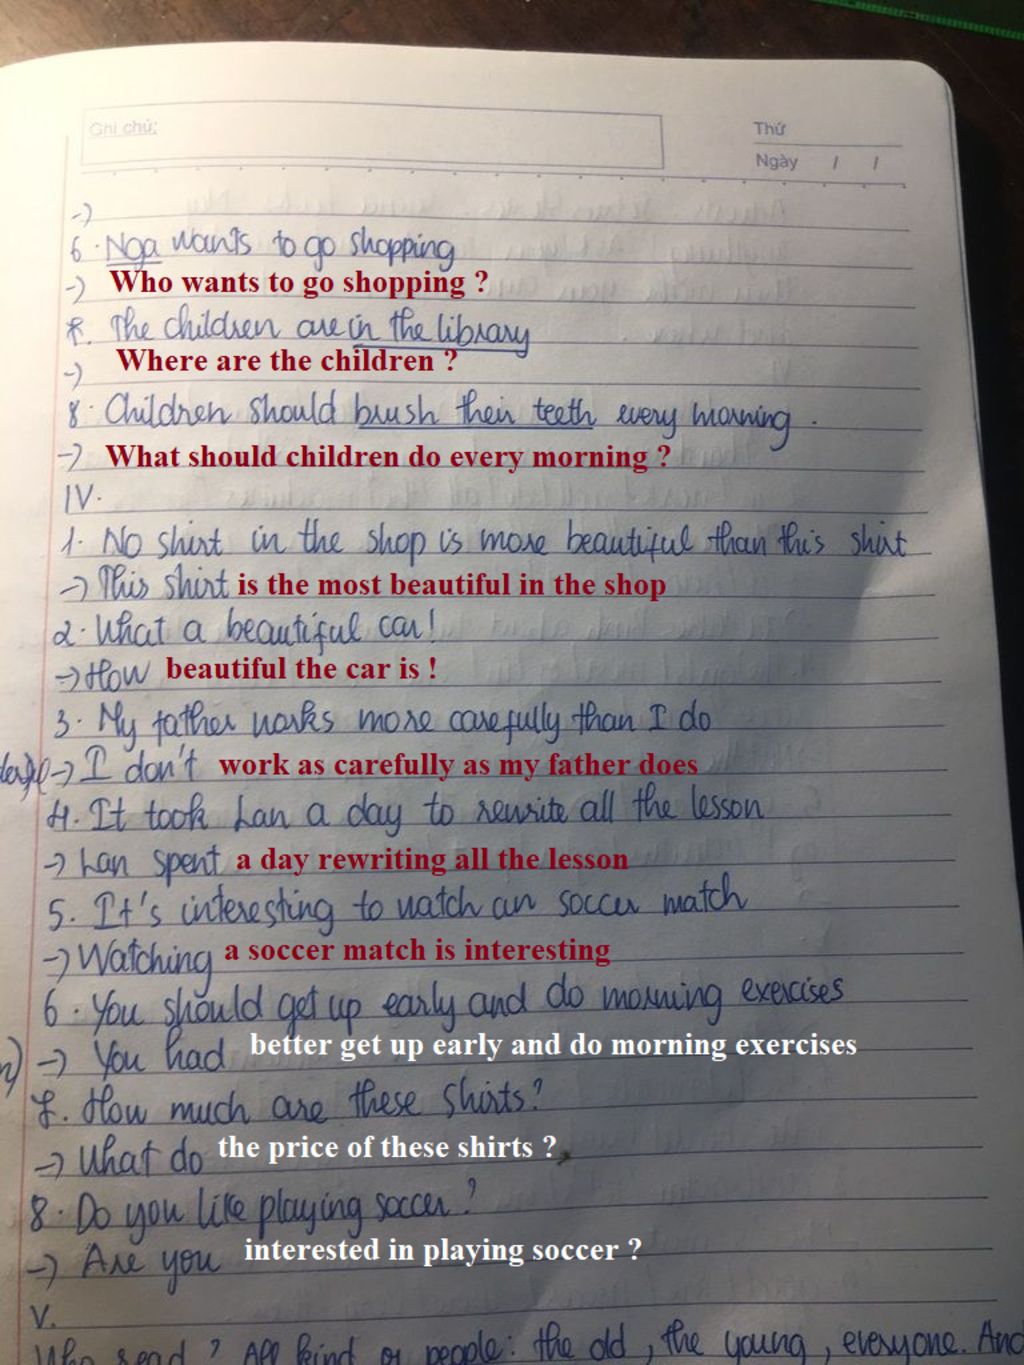 Ghi chú:
Thứ
Ngày / /
->
6. Nga wants to go shopping
-> Who wants to go shopping ?
7. The children are in the library
-> Where are the children ?
8. Children should brush their teeth every morning.
-> What should children do every morning ?
IV.
1. No shirt in the shop is more beautiful than this shirt
-> This shirt is the most beautiful in the shop
2. What a beautiful car!
-> How beautiful the car is !
3. My father works more carefully than I do
-> I don't work as carefully as my father does
4. It took Lan a day to rewrite all the lesson
-> Lan spent a day rewriting all the lesson
5. It's interesting to watch an soccer match
-> Watching a soccer match is interesting
6. You should get up early and do morning exercises
-> You had better get up early and do morning exercises
7. How much are these shirts?
-> What do the price of these shirts ?
8. Do you like playing soccer?
-> Are you interested in playing soccer ?
V.
Who read ? All kind of people: the old, the young, everyone. And